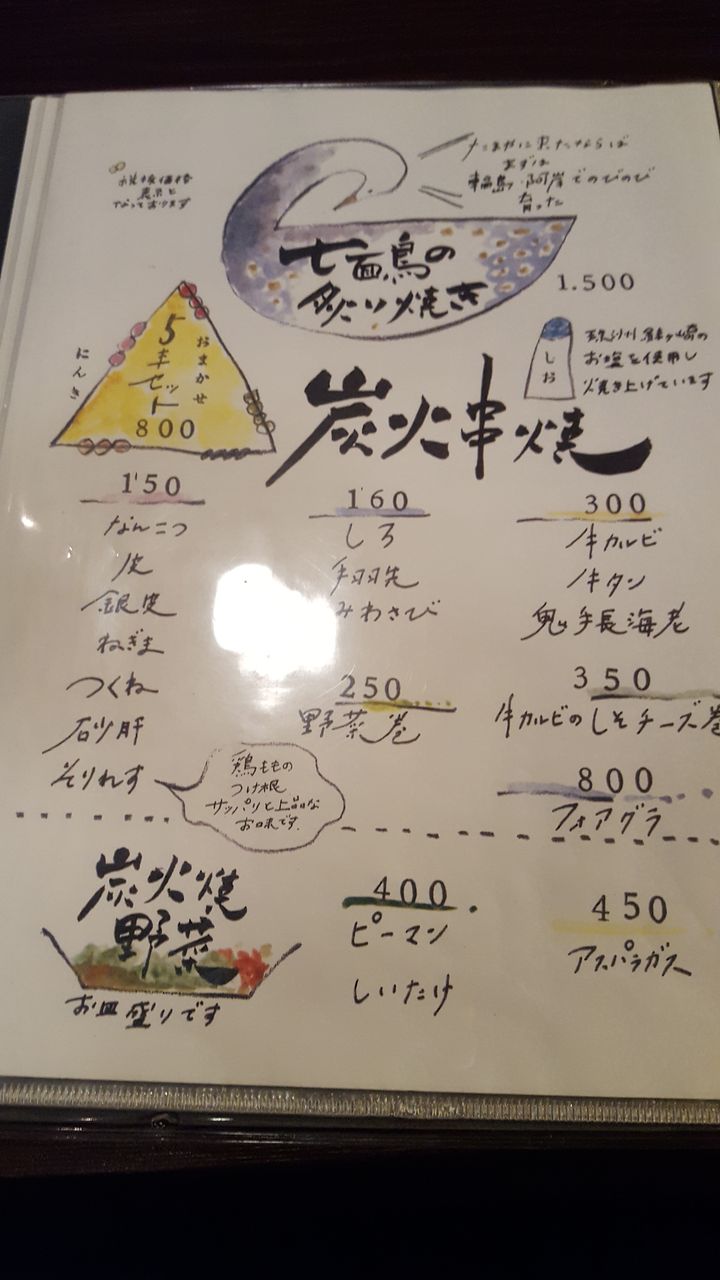 税抜価格
表示と
なっております
たまやに来たならば
まずは
輪島・阿岸でのびのび
育った
七面鳥の
炙り焼き
1.500
にんき
おまかせ
5本セット
800
しお
珠洲
お塩を使用し
焼き上げています
炭火串焼
150
なんこつ
皮
銀皮
ねぎま
つくね
砂肝
そりれす
鶏ももの
つけ根
サッパリと上品な
お味です.
160
しろ
手羽先
みわさび
250
野菜巻
300
牛カルビ
牛タン
鬼手長海老
350
牛カルビのしそチーズ巻
800
フォアグラ
炭火焼
野菜
お皿盛りです
400
ピーマン
しいたけ
450
アスパラガス